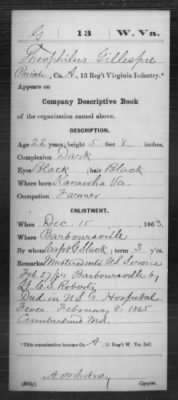 G | 13 | W. Va.
Theophilus Gillespie
Private, Co. A, 13 Reg't Virginia Infantry.*
Appears on
Company Descriptive Book
of the organization named above.
DESCRIPTION.
Age 22 years; height 5 feet 8 inches.
Complexion Dark
Eyes Black; hair Black
Where born Kanawha Va.
Occupation Farmer
ENLISTMENT.
When Dec. 15, 1863.
Where Barboursville
By whom Capt ; term 3 y'rs.
Remarks Mustered into U.S. Service
Feb 27/64 Barboursville by
Lt. C. S. Roberts
Died in U.S. G. Hospital
Fever February 8. 1865
Cumberland Md.
*This organization became Co. A, 13 Reg't W. Va. Inf.
Copyist.